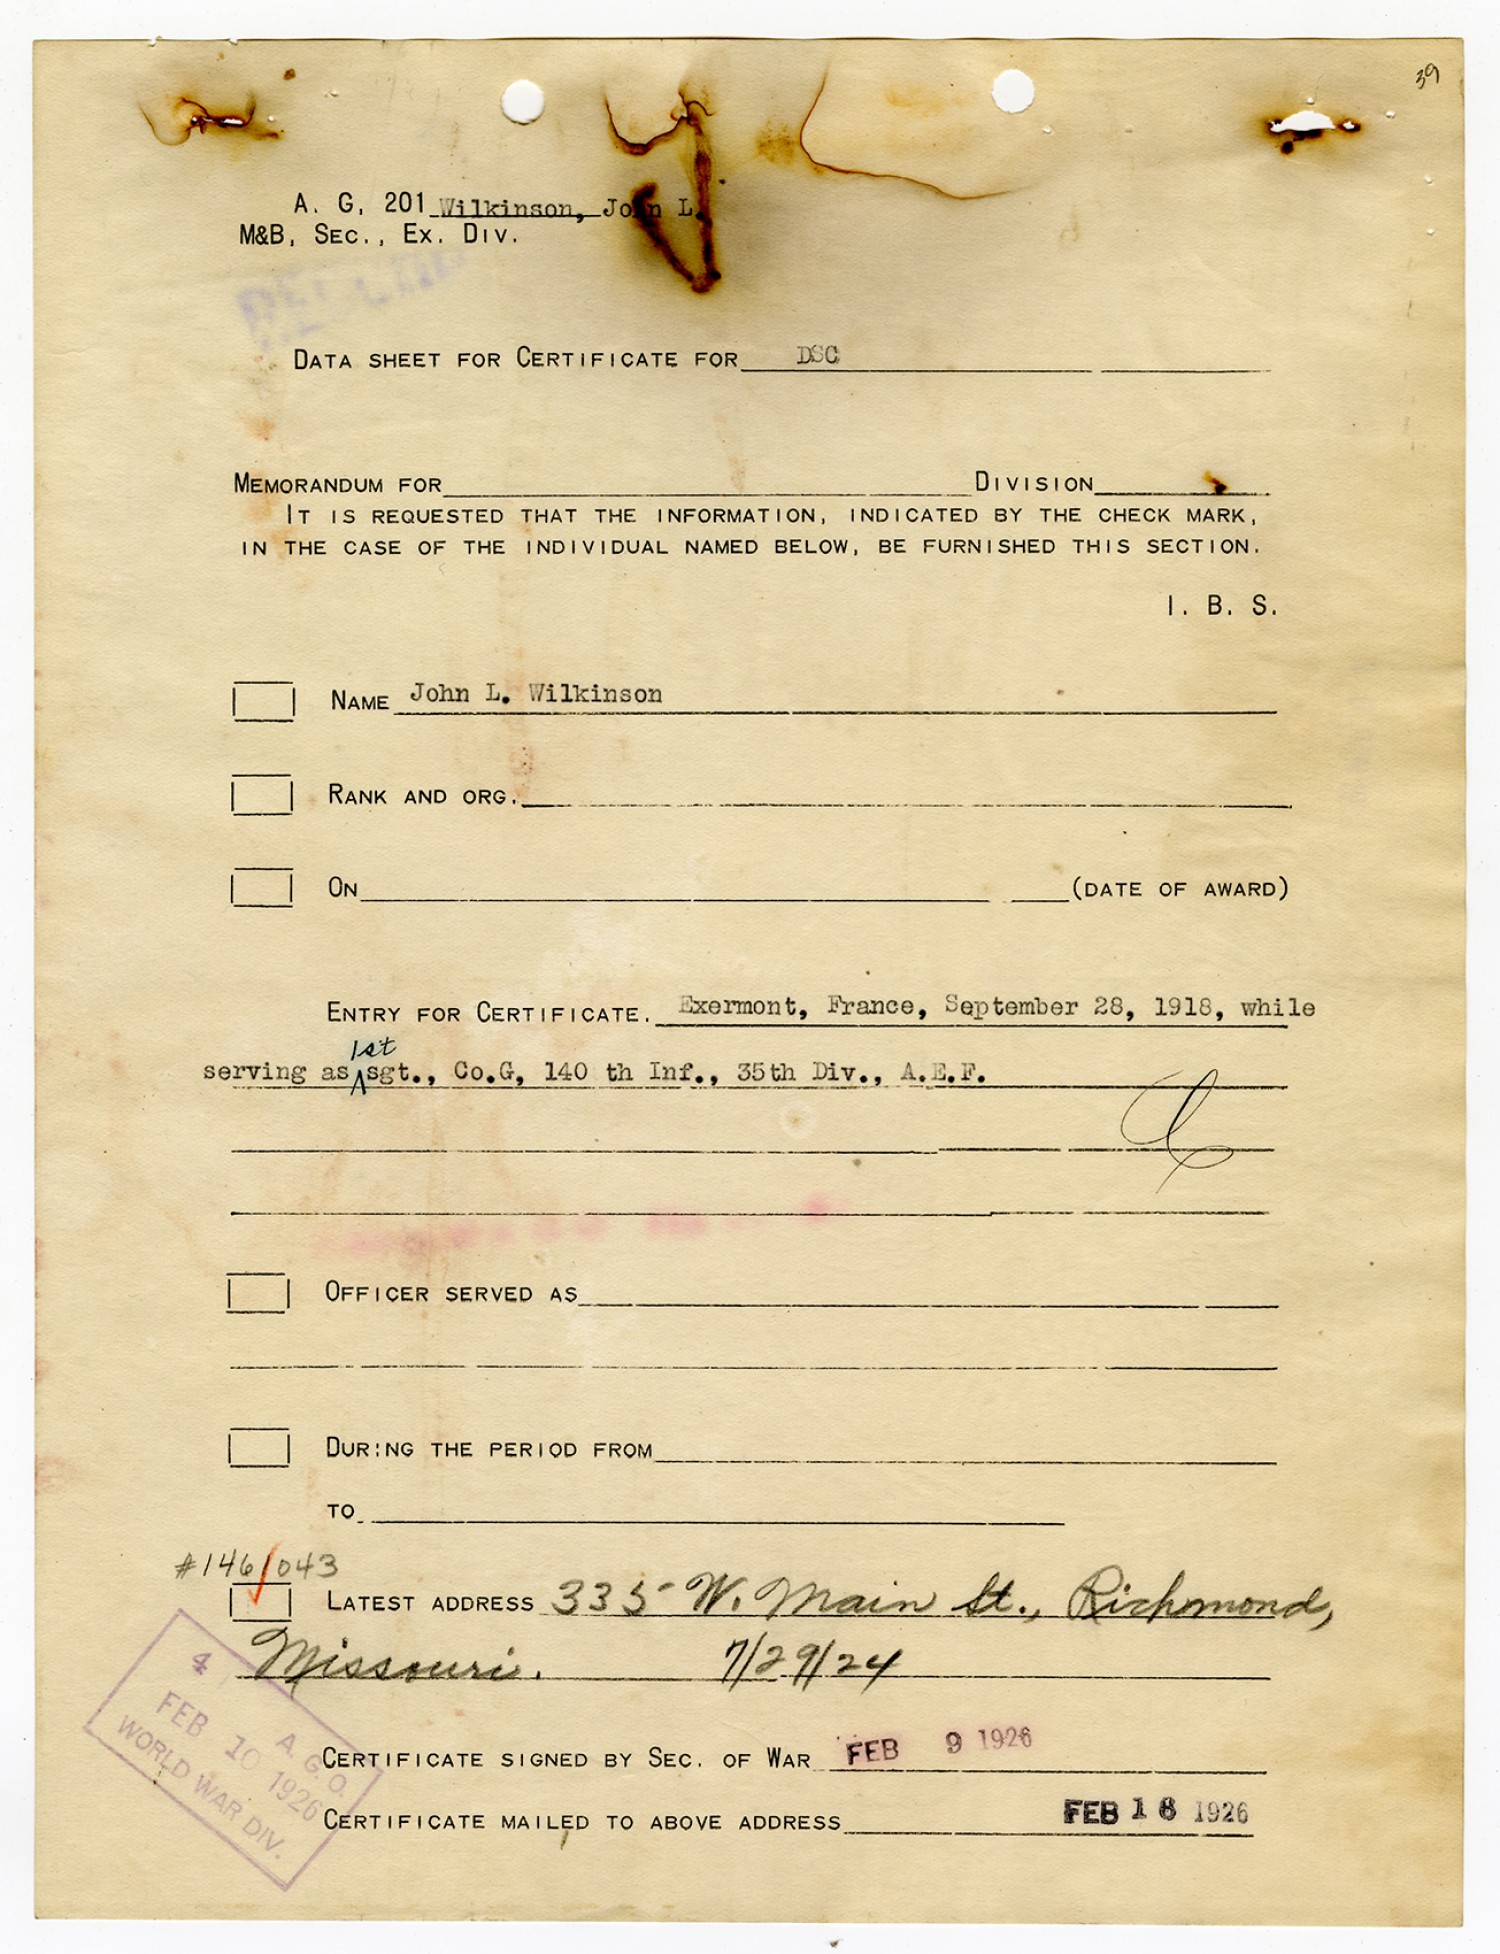 39
A. G. 201 Wilkinson, John L.
M&B, Sec., Ex. Div.
Data sheet for Certificate for DSC
Memorandum for Division
It is requested that the information, indicated by the check mark,
in the case of the individual named below, be furnished this section.
I. B. S.
Name John L. Wilkinson
Rank and org.
On (date of award)
Entry for Certificate. Exermont, France, September 28, 1918, while
1st
serving as sgt., Co.G, 140 th Inf., 35th Div., A.E.F.
Officer served as
During the period from
to
#1461043
Latest address 335 W. Main St., Richmond,
Missouri. 7/29/24
4
A. G. O.
FEB 10 1926
WORLD WAR DIV.
Certificate signed by Sec. of War FEB 9 1926
Certificate mailed to above address FEB 16 1926